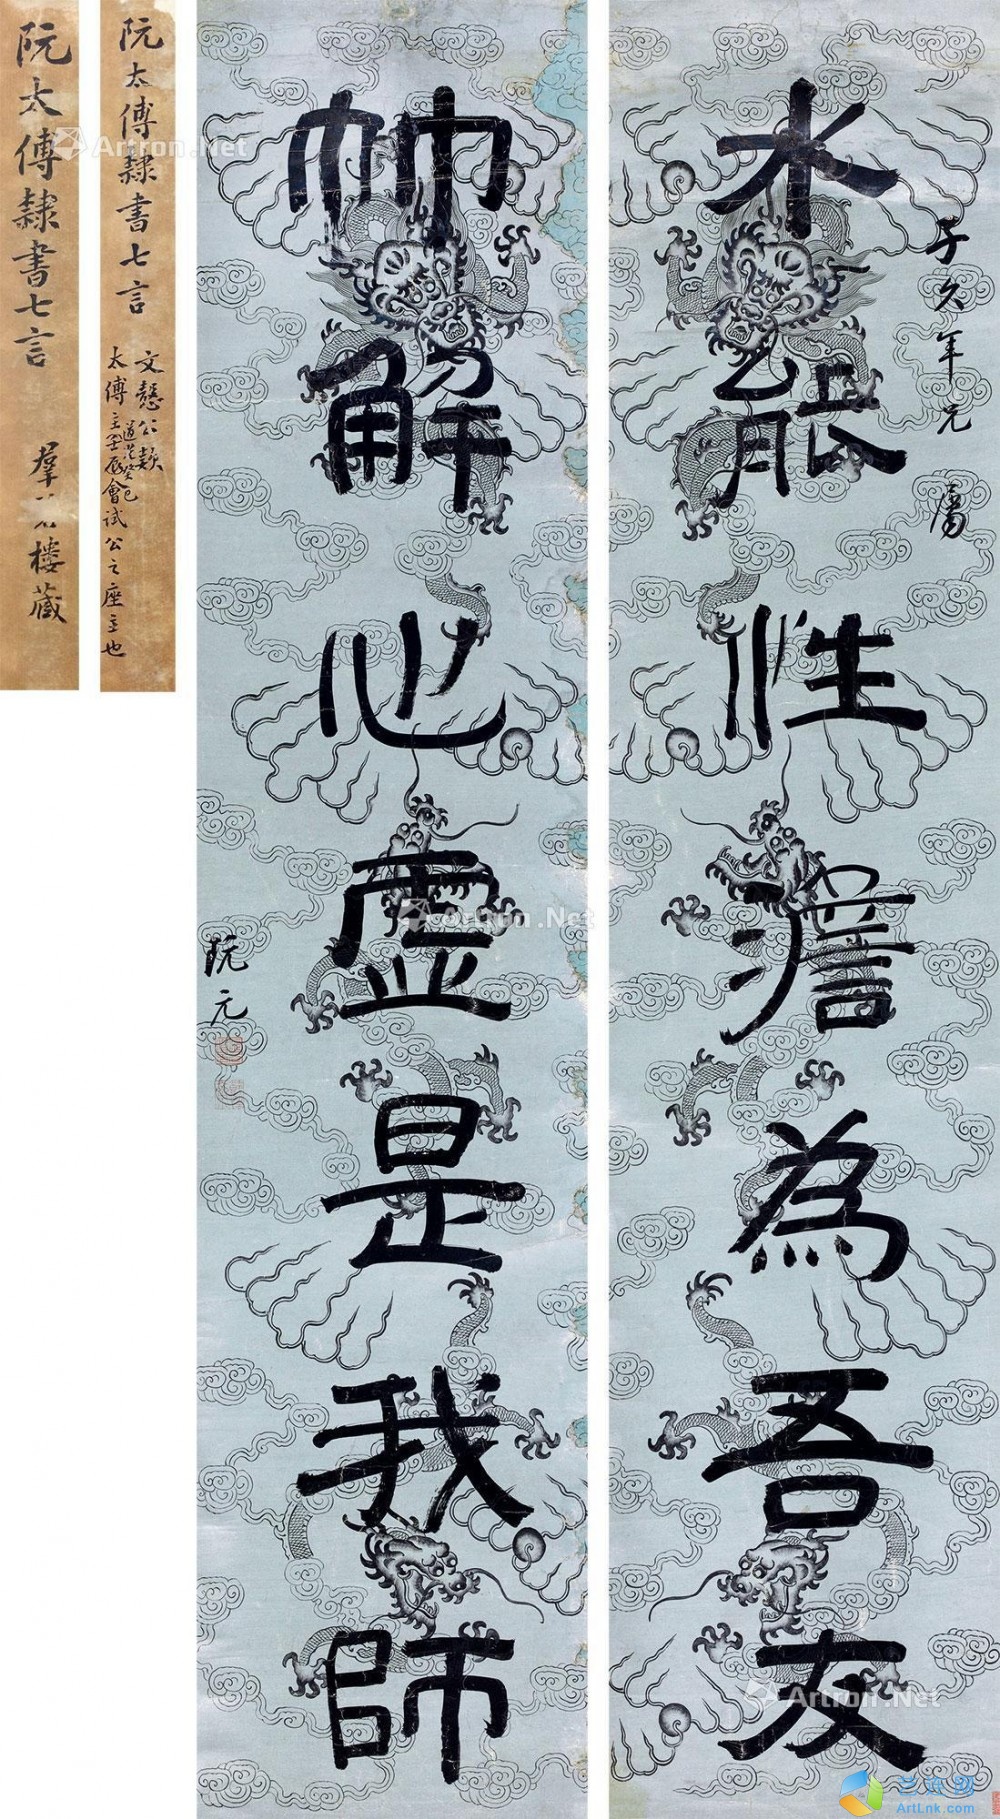 水能性澹為吾友
子久年兄 屬
竹解心虛是我師
阮元
阮太傅隸書七言
文慤公款
道光癸巳
太傅主壬辰會試公之座主也
阮太傅隸書七言 羣 樓藏
Artron.Net
Artron.Net
Artron.Net
ArtLnk.com